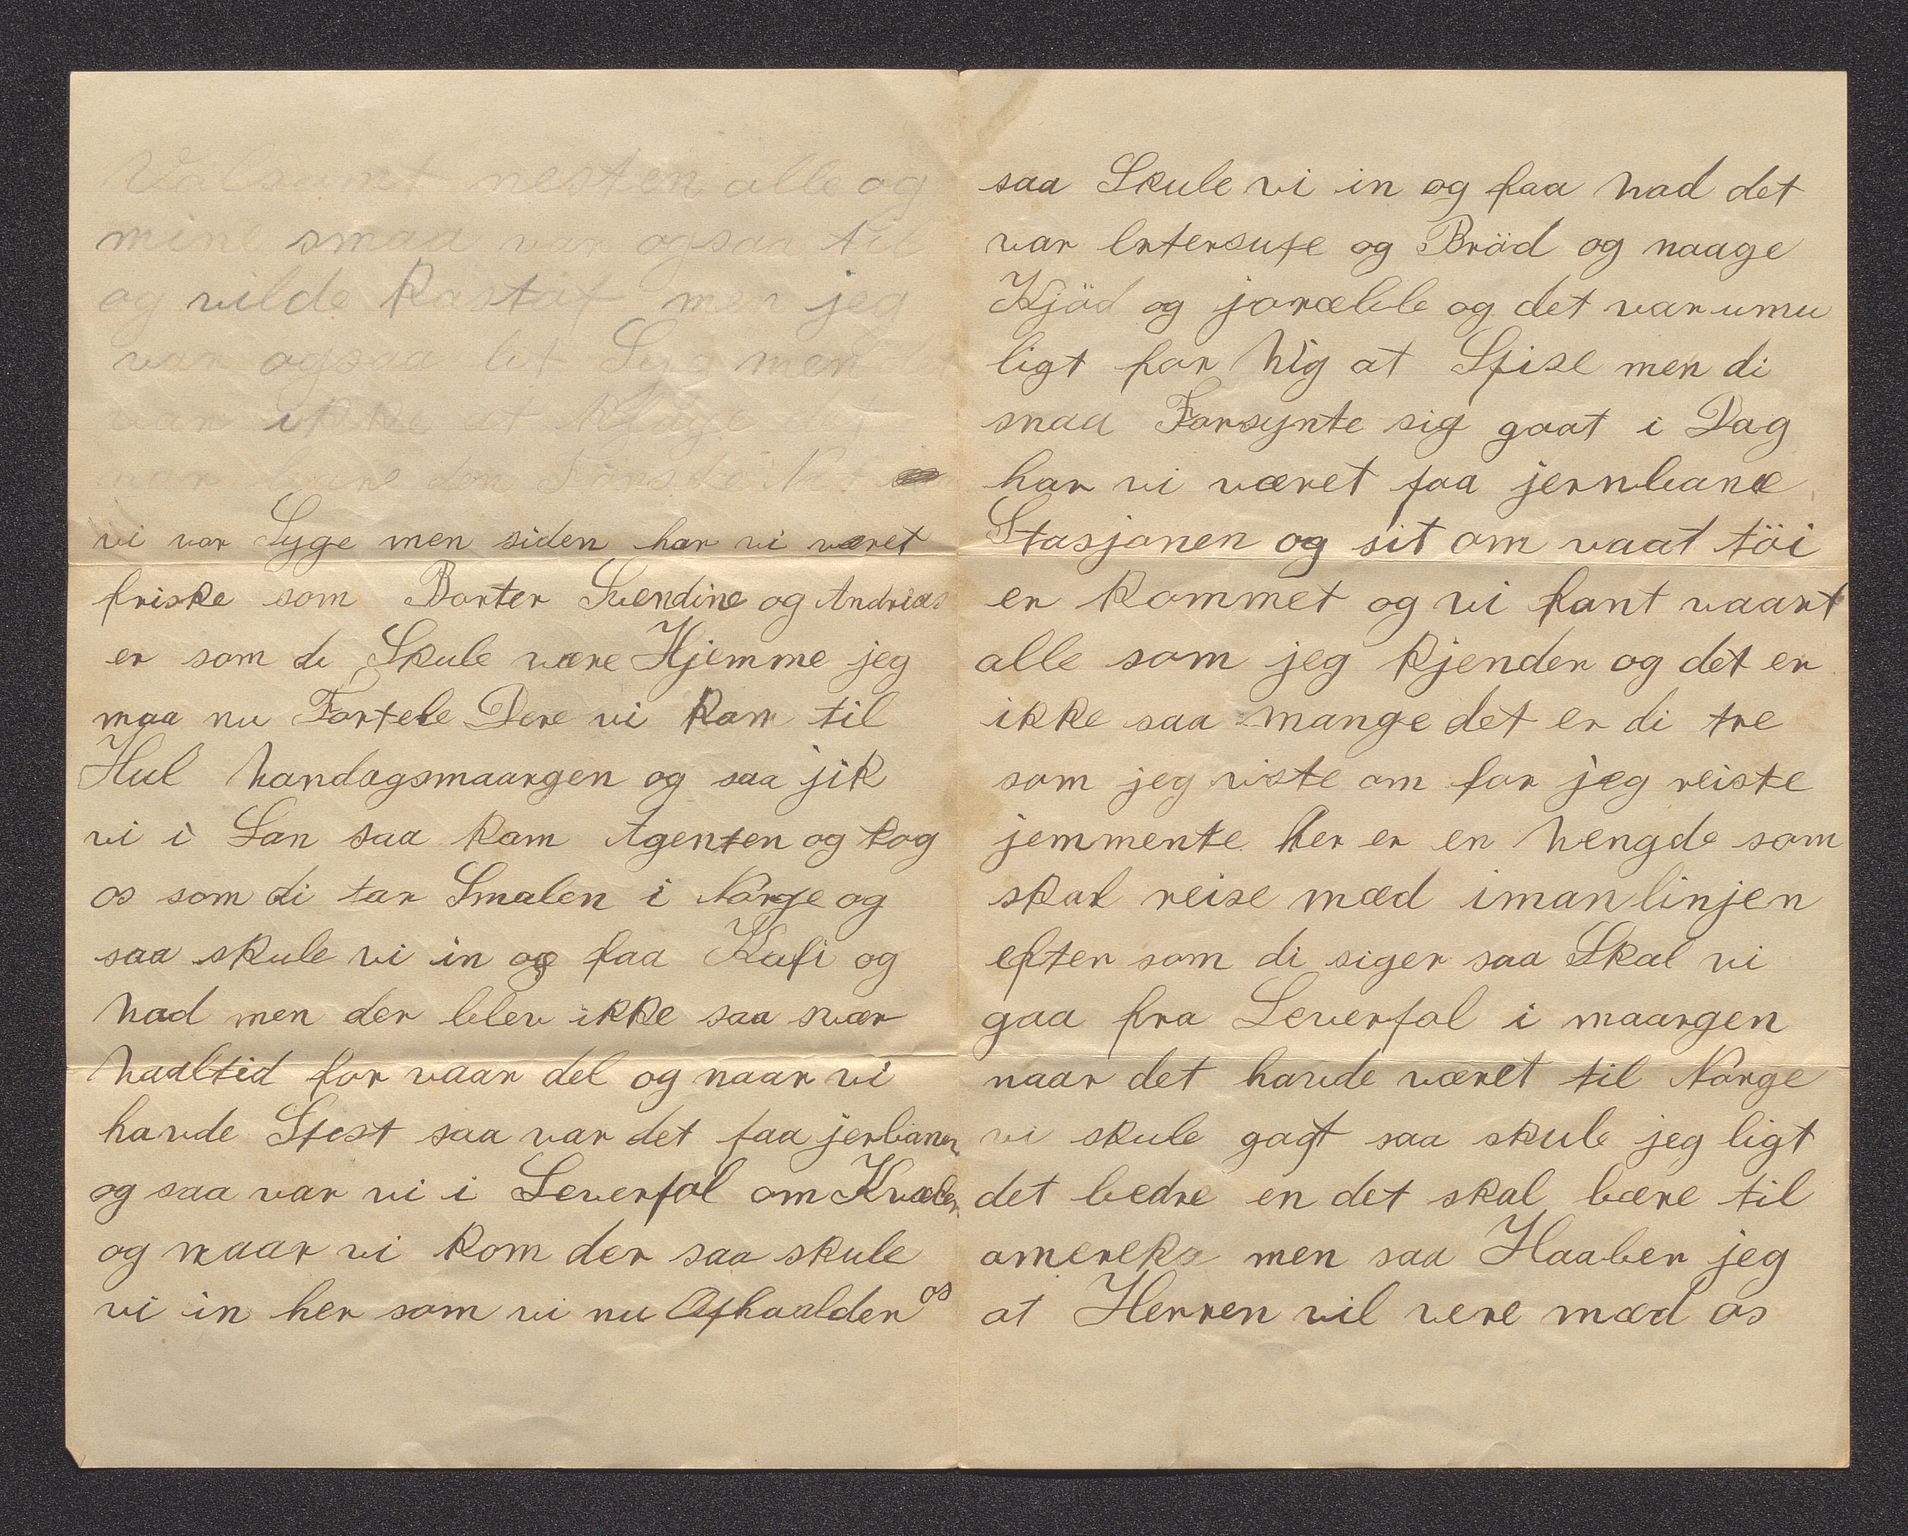 Valsomt nesten alle og
mine smaa var ogsaa til
og vilde Kastaf men jeg
var ogsaa lit Syg men det
var ikke at Klage det
var bare den Førsde Nat
vi var Syge men siden har vi været
friske som Borter Svendine og Andreas
er som di Skule være Hjemme jeg
maa nu Fortele Dere vi kom til
Hul Mandagsmaargen og saa jik
vi i Lan saa kom Agenten og tog
os som di tar Smalen i Norge og
saa skule vi in og faa Kafi og
Mad men der blev ikke saa svær
Maaltid for vaar del og naar vi
havde Spist saa var det paa jerbanen
og saa var vi i Leverpol om Kvælen
og naar vi kom der saa skule
vi in her som vi nu Ophaalder os
saa Skule vi in og faa Mad det
var Ertersupe og Bröd og naage
Kjöd og joræble og det var umu
ligt for Mig at Spise men di
smaa Forsynte sig gaat i Dag
har vi været paa jernbane
Stasjonen og sit om vaat töi
er kommet og vi fant vaart
alle som jeg kjender og det er
ikke saa mange det er di tre
som jeg viste om for jeg reiste
jemmente her er en Mengde som
skal reise mæd iman linjen
efter som di siger saa Skal vi
gaa fra Leverpol i maargen
naar det havde været til Norge
vi skule gagt saa skule jeg ligt
det bedre en det skal bære til
amereka men saa Haaber jeg
at Herren vil vere mæd os